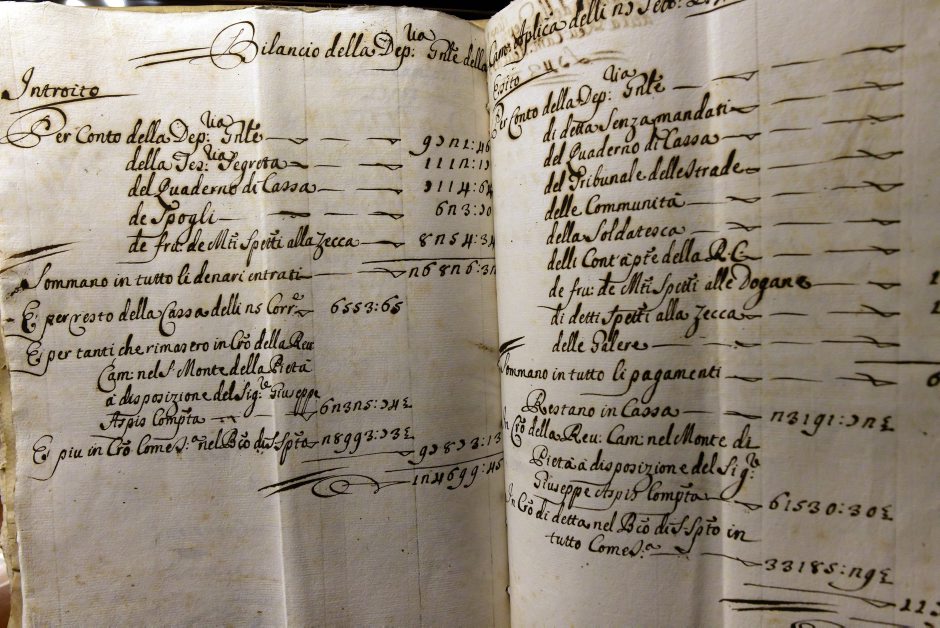 Bilancio della Dep:ria Gnle della Cam:a Aplica delli 25
Introito
Per Conto della Dep:ria Gnle 9721:46
della Tes:ria Segreta 1112:17
del Quaderno di Cassa 7114:65
de Spogli 623:70
de fru: de Mti Spetti alla Zecca 8254:34
Sommano in tutto li denari entrati 26826:32
E per resto della Cassa delli 25 Corr.e 6553:65
E per tanti che rimasero in Cro della Reu:
Cam: nel S: Monte della Pietà
à disposizione del Sig:re Giuseppe
Aspis Compta 62325:74½
E piu in Cro Come S:a nel Bco di S: Spto 28993:73½
97873:13
124699:45
Esito
Per Conto della Dep:ria Gnle
di detta Senza mandati
del Quaderno di Cassa
del Tribunale delle Strade
delle Communità
della Soldatesca
delli Cont à pte della R.C.
de fru: de Mti Spetti alle Dogane
di detti Spetti alla Zecca
delle Galere
Sommano in tutto li pagamenti
Restano in Cassa 23191:72½
In Cro della Reu: Cam: nel Monte di
Pietà à disposizione del Sig:re
Giuseppe Aspis Compta 61530:30½
In Cro di detta nel Bco di S: Spto in
tutto Come S:a 33185:29½